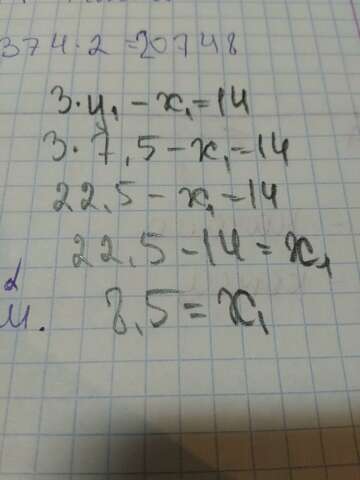 374·2=20748
3·y₁-x₁=14
3·7,5-x₁=14
22,5-x₁=14
22,5-14=x₁
8,5=x₁